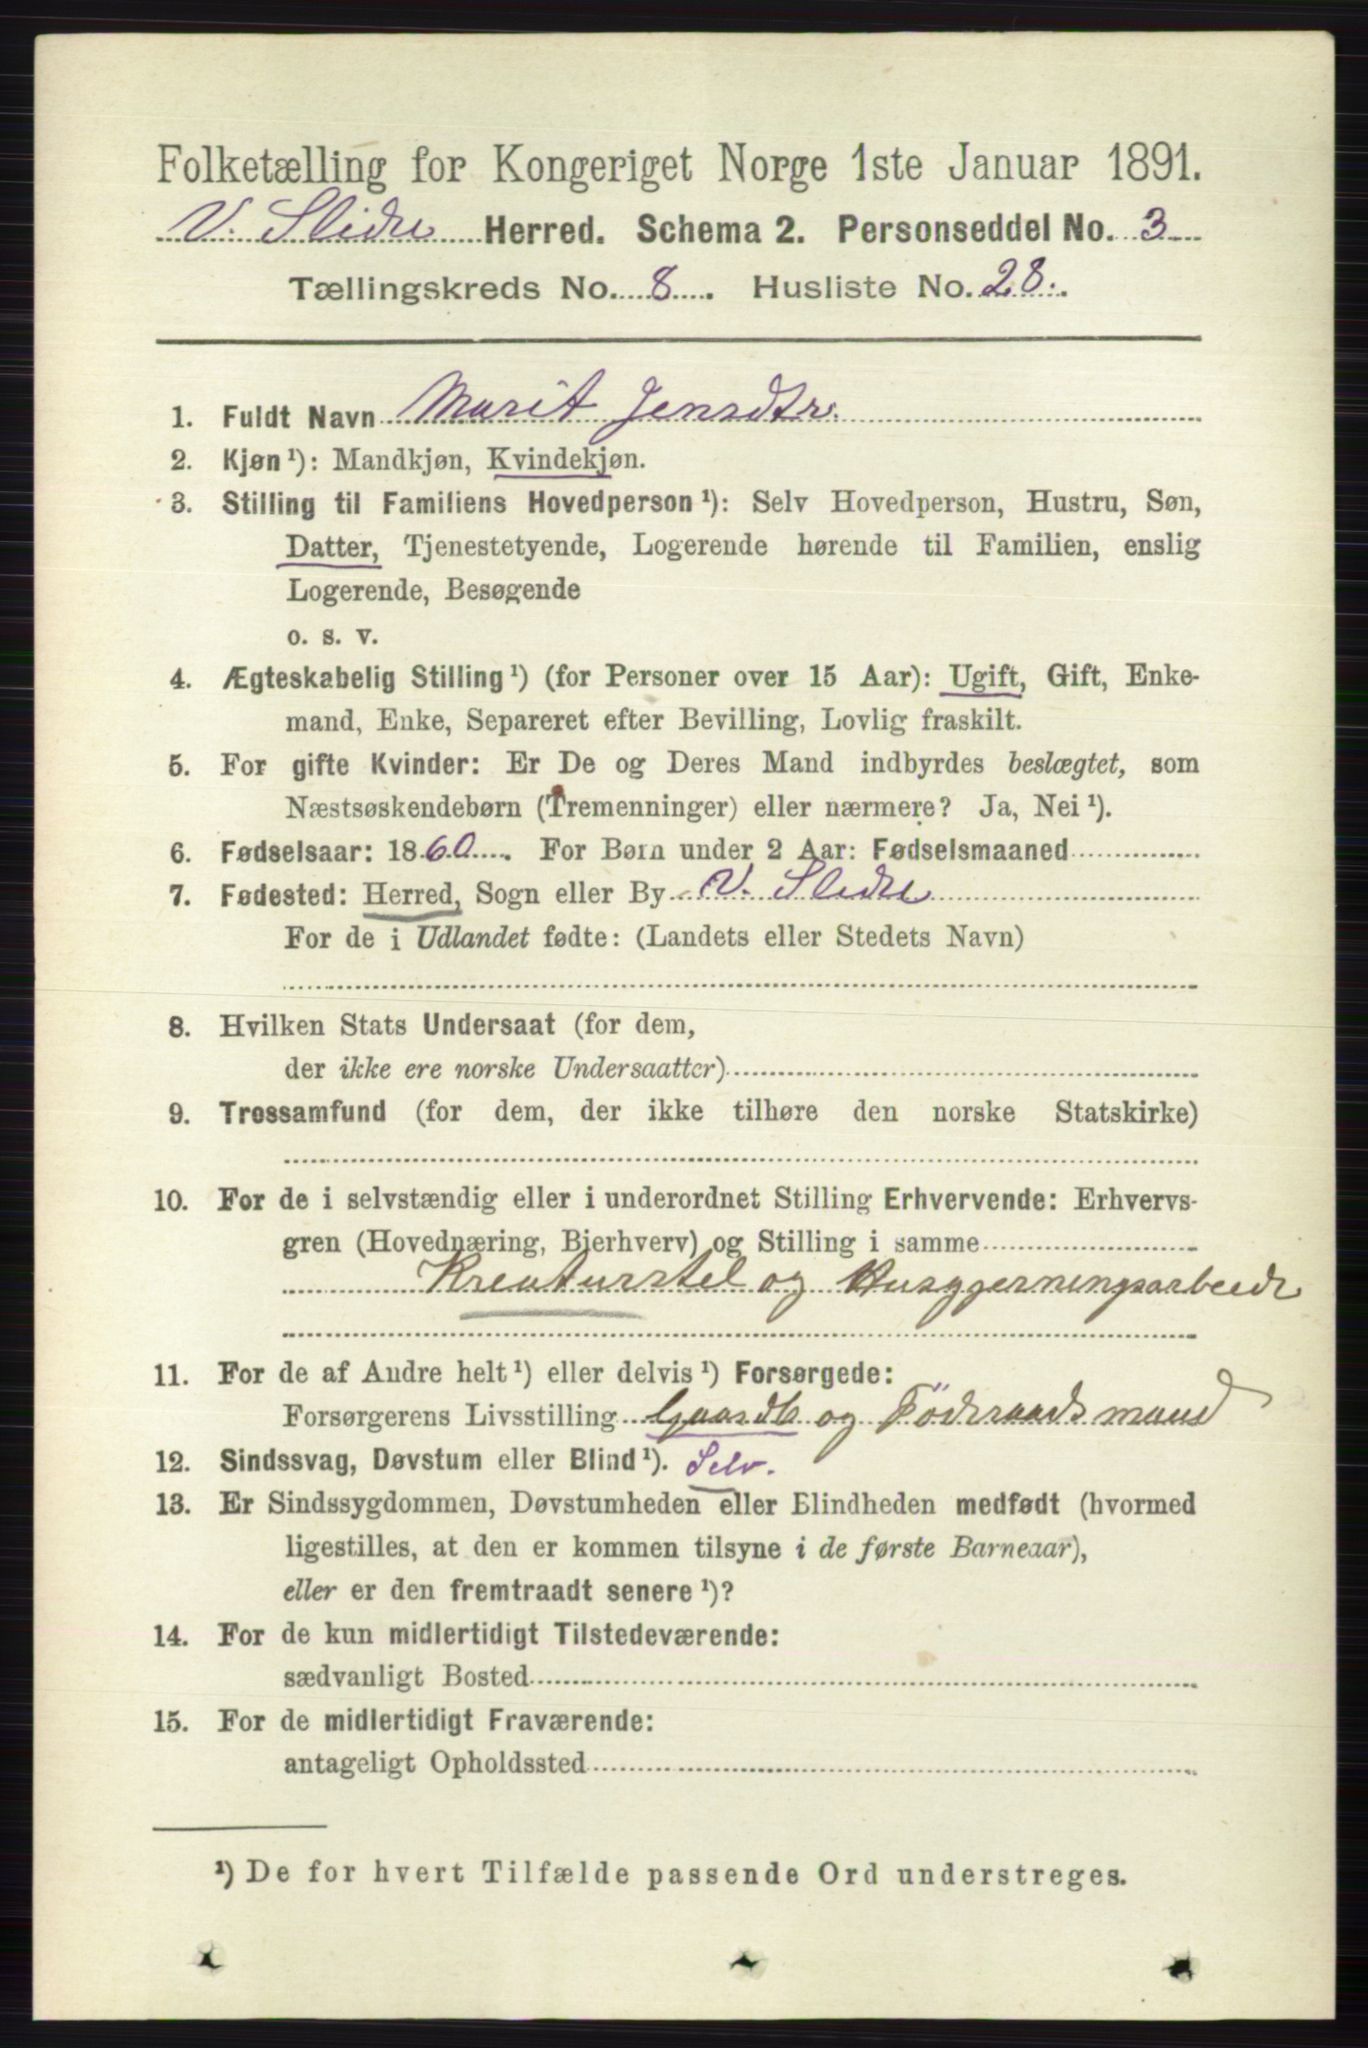 Folketælling for Kongeriget Norge 1ste Januar 1891.
V. Slidre Herred. Schema 2. Personseddel No. 3
Tællingskreds No. 8. Husliste No. 28.
1. Fuldt Navn Marit Jensdtr.
2. Kjøn ¹): Mandkjøn, Kvindekjøn.
3. Stilling til Familiens Hovedperson ¹): Selv Hovedperson, Hustru, Søn,
Datter, Tjenestetyende, Logerende hørende til Familien, enslig
Logerende, Besøgende
o. s. v.
4. Ægteskabelig Stilling ¹) (for Personer over 15 Aar): Ugift, Gift, Enke-
mand, Enke, Separeret efter Bevilling, Lovlig fraskilt.
5. For gifte Kvinder: Er De og Deres Mand indbyrdes beslægtet, som
Næstsøskendebørn (Tremenninger) eller nærmere? Ja, Nei ¹).
6. Fødselsaar: 1860. For Børn under 2 Aar: Fødselsmaaned
7. Fødested: Herred, Sogn eller By V. Slidre
For de i Udlandet fødte: (Landets eller Stedets Navn)
8. Hvilken Stats Undersaat (for dem,
der ikke ere norske Undersaatter)
9. Trossamfund (for dem, der ikke tilhøre den norske Statskirke)
10. For de i selvstændig eller i underordnet Stilling Erhvervende: Erhvervs-
gren (Hovednæring, Bierhverv) og Stilling i samme
Kreaturstel og Husgjerningsarbeide
11. For de af Andre helt ¹) eller delvis ¹) Forsørgede:
Forsørgerens Livsstilling Gaardb og Föderaadsmand
12. Sindssvag, Døvstum eller Blind ¹). Selv.
13. Er Sindssygdommen, Døvstumheden eller Blindheden medfødt (hvormed
ligestilles, at den er kommen tilsyne i de første Barneaar),
eller er den fremtraadt senere ¹)?
14. For de kun midlertidigt Tilstedeværende:
sædvanligt Bosted
15. For de midlertidigt Fraværende:
antageligt Opholdssted
¹) De for hvert Tilfælde passende Ord understreges.